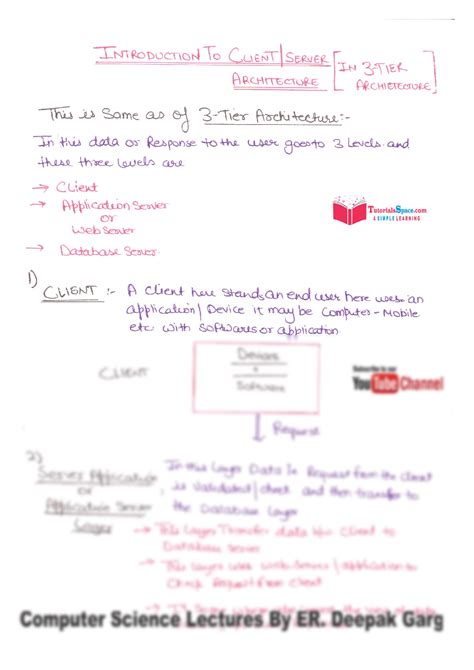 INTRODUCTION TO CLIENT/SERVER [IN 3-TIER
ARCHITECTURE ARCHIETECTURE]
This is Same as of 3-Tier Architecture:-
In this data or Response to the user goes to 3 Levels and
these three levels are
→ Client
→ Application Server
or
Web Server
→ Database Server
TutorialsSpace.com
A SIMPLE LEARNING
1)
CLIENT :- A client here stands an end user here uses an
application/Device it may be Computer - Mobile
etc with Softwares or application
Devices
+
Software
CLIENT
YouTube Channel
Request
2)
Server Application
or
Application Server
Layer
In this Layer Data In Request from the client
is validated/check and then transfer to
the Database Layer
→ This Layer Transfer data b/w Client to
Database Server
→ This layer uses web Server/application to
Check Request from client
Computer Science Lectures By ER. Deepak Garg